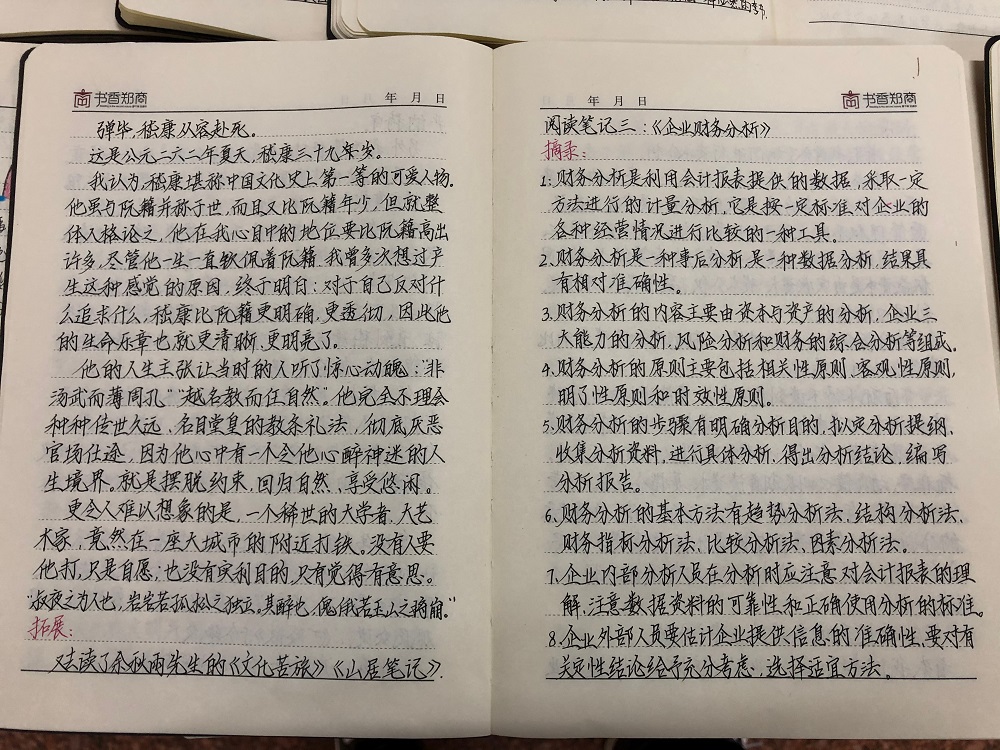 书香郑商
年 月 日
弹毕，嵇康从容赴死。
这是公元二六二年夏天，嵇康三十九岁。
我认为，嵇康堪称中国文化史上第一等的可爱人物。
他虽与阮籍并称于世，而且又比阮籍年少，但就整
体人格论之，他在我心目中的地位要比阮籍高出
许多，尽管他一生一直钦佩着阮籍。我曾多次想过产
生这种感觉的原因，终于明白：对于自己反对什
么追求什么，嵇康比阮籍更明确、更透彻，因此他
的生命乐章也就更清晰、更明亮了。
他的人生主张让当时的人听了惊心动魄：“非
汤武而薄周孔”“越名教而任自然”。他完全不理会
种种传世久远、名目堂皇的教条礼法，彻底厌恶
官场仕途，因为他心中有一个令他心醉神迷的人
生境界。就是摆脱约束，回归自然，享受悠闲。
更令人难以想象的是，一个稀世的大学者、大艺
术家，竟然在一座大城市的附近打铁。没有人要
他打，只是自愿；也没有实利目的，只有觉得有意思。
“叔夜之为人也，岩岩若孤松之独立。其醉也，傀俄若玉山之将崩。”
拓展：
又去读了余秋雨先生的《文化苦旅》《山居笔记》.
年 月 日
书香郑商
阅读笔记三：《企业财务分析》
摘录：
1、财务分析是利用会计报表提供的数据，采取一定
方法进行的计量分析，它是按一定标准对企业的
各种经营情况进行比较的一种工具。
2、财务分析是一种事后分析，是一种数据分析，结果具
有相对准确性。
3、财务分析的内容主要由资本与资产的分析，企业三
大能力的分析，风险分析和财务的综合分析等组成。
4、财务分析的原则主要包括相关性原则、客观性原则，
明了性原则和时效性原则。
5、财务分析的步骤有明确分析目的，拟定分析提纲，
收集分析资料，进行具体分析，得出分析结论，编写
分析报告。
6、财务分析的基本方法有趋势分析法、结构分析法、
财务指标分析法、比较分析法、因素分析法。
7、企业内部分析人员在分析时应注意对会计报表的理
解，注意数据资料的可靠性和正确使用分析的标准。
8、企业外部人员要估计企业提供信息的准确性，要对有
关定性结论给予充分考虑，选择适宜方法。